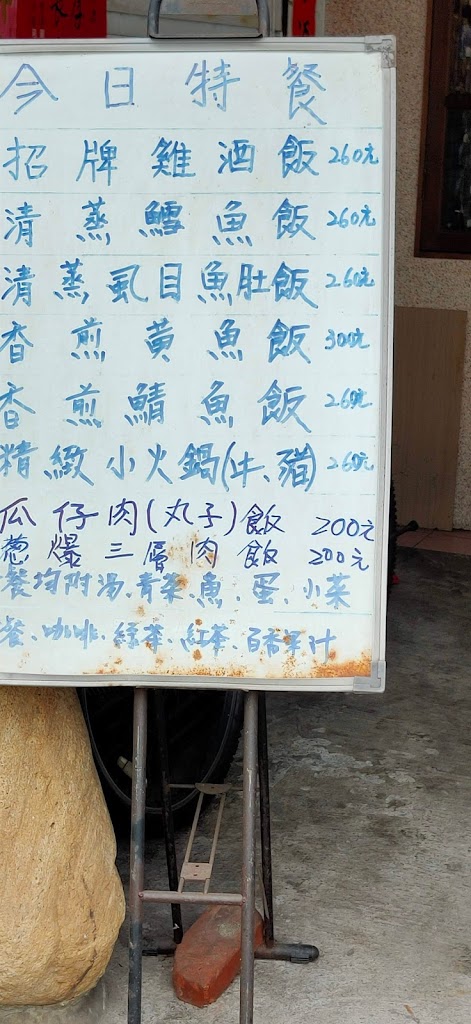 今日特餐
招牌雞酒飯260元
清蒸鱈魚飯260元
清蒸虱目魚肚飯260元
香煎黃魚飯300元
香煎鯖魚飯260元
精緻小火鍋(牛、豬)260元
瓜仔肉(丸子)飯 200元
蔥爆三層肉飯 200元
餐均附湯、青菜、魚、蛋、小菜
餐、咖啡、綠茶、紅茶、百香果汁